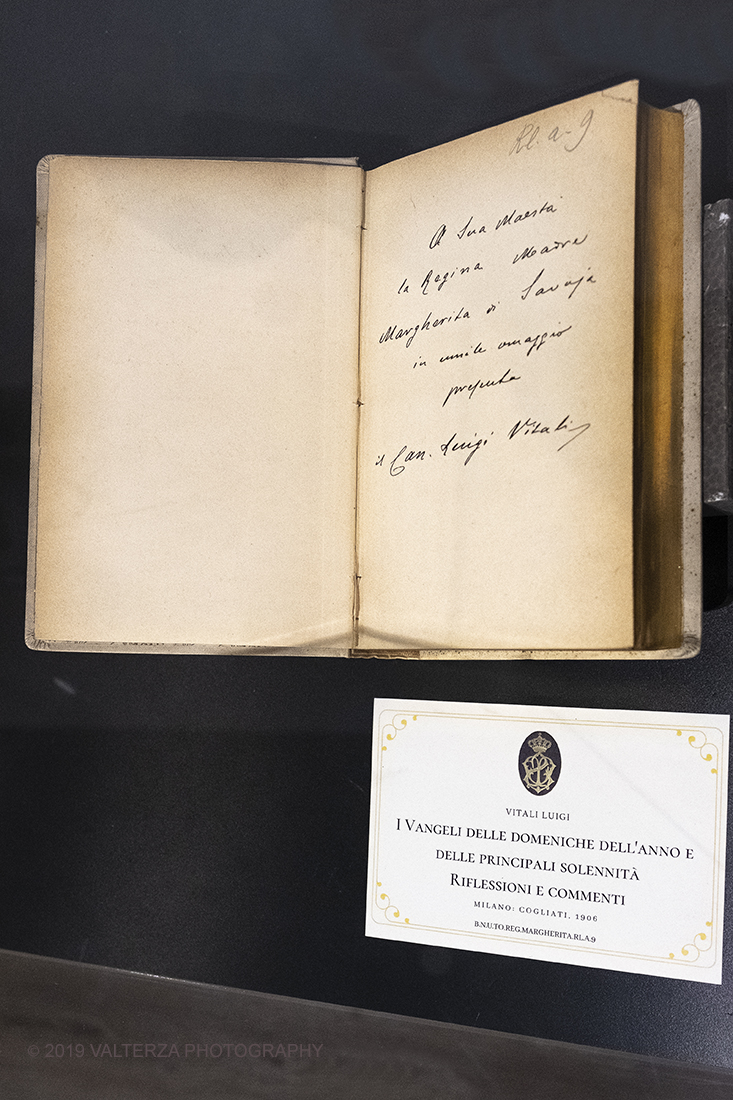 Rl. a-9
A Sua Maestà
la Regina Madre
Margherita di Savoja
in umile omaggio
presenta
il Can. Luigi Vitali
VITALI LUIGI
I VANGELI DELLE DOMENICHE DELL'ANNO E
DELLE PRINCIPALI SOLENNITÀ
RIFLESSIONI E COMMENTI
MILANO: COGLIATI, 1906
B.N.U.TO.REG.MARGHERITA.RL.A.9
© 2019 VALTERZA PHOTOGRAPHY